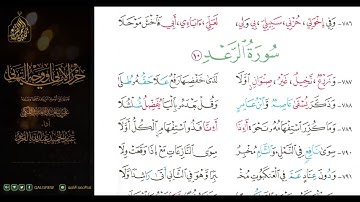 ٧٨٦- وَفِي إِخْوَتِي، حُزْنِي، سَبِيلِيَ، بِي، وَلِي، لَعَلِّيَ، ءَابَاءِي، أَبِي، فَاخْشَ مَوْحَلَا
سُورَةُ الرَّعْدِ ١٠
٧٨٧- وَزَرْعٌ، نَخِيلٍ، غَيْرُ، صِنْوَانٍ، اوَّلَا لَدَى خَفْضِهَا رَفْعٌ عَلَا حَقُّهُ طُلَى
٧٨٨- وَذَكَّرَ تُسْقَى عَاصِمٌ وَابْنُ عَامِرٍ وَقُلْ بَعْدَهُ بِالْيَا يُفَضِّلُ شُلْشُلَا
٧٨٩- وَمَا كُرِّرَ اسْتِفْهَامُهُ نَحْوُ: أَءِذَا أَءِنَّا فَذُو اسْتِفْهَامٍ الْكُلُّ أَوَّلَا
٧٩٠- سِوَى نَافِعٍ فِي النَّمْلِ، وَالشَّامِ مُخْبِرٌ سِوَى النَّازِعَاتِ مَعْ إِذَا وَقَعَتْ وِلَا
٧٩١- وَدُونَ عِنَادٍ عَمَّ فِي الْعَنْكَبُوتِ مُخْـ ـبِرًا وَهُوَ فِي الثَّانِي أَتَى رَاشِدًا وَلَا
حرز الأماني ووجه التهاني